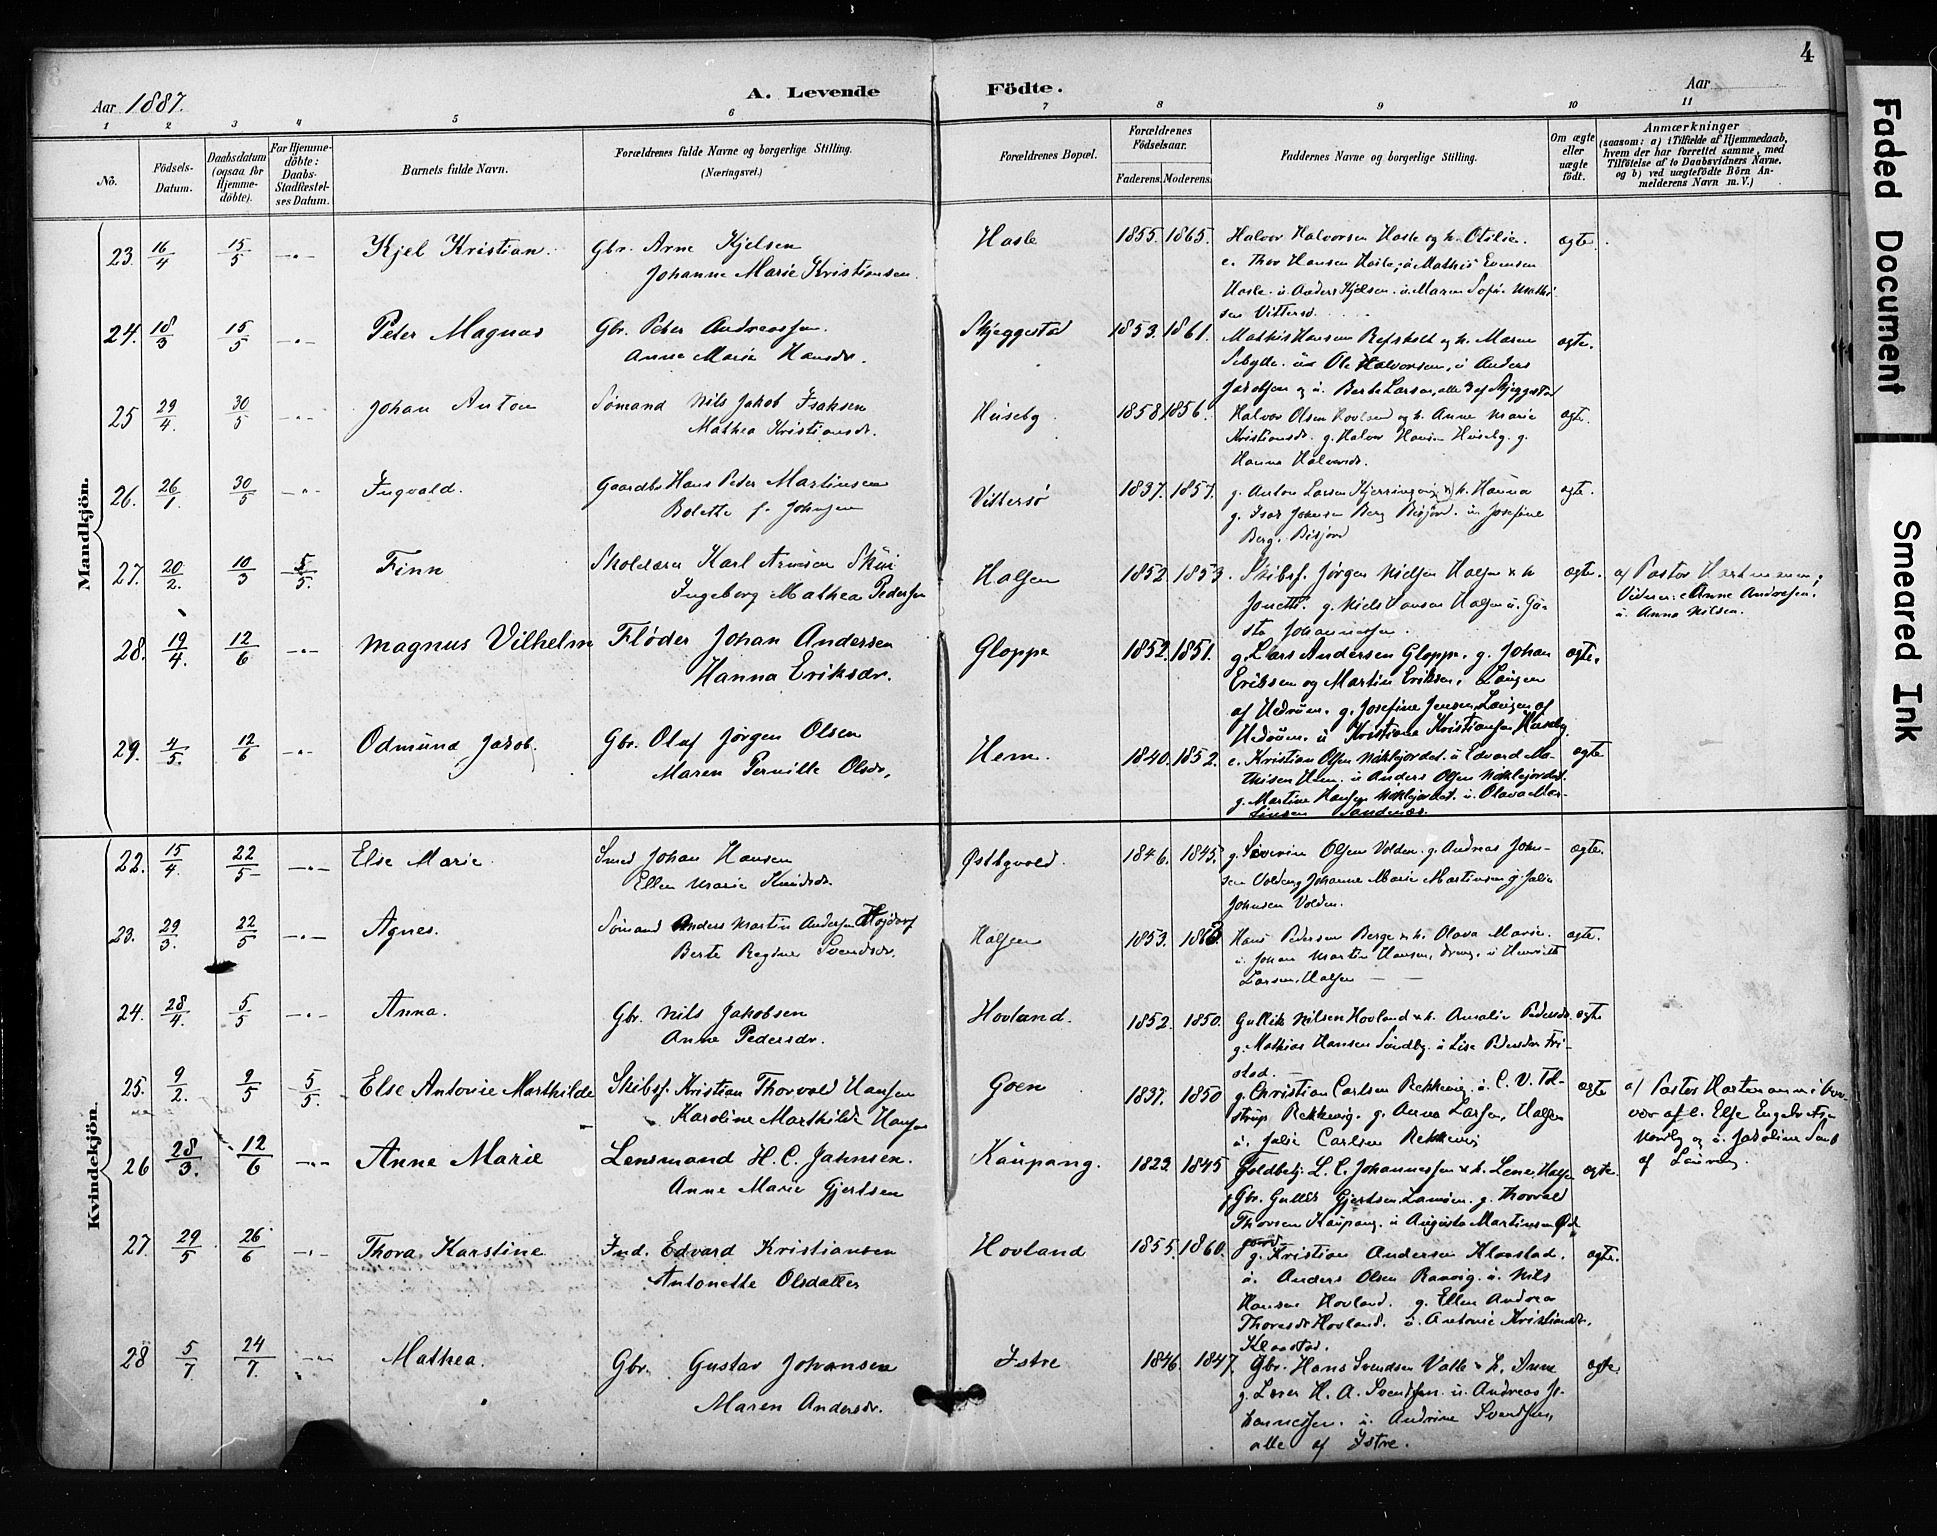 4
Aar 1887.
A. Levende Födte.
Aar
1 2 3 4 5 6 7 8 9 10 11
No.
Födsels-Datum.
Daabsdatum (ogsaa for Hjemme-döbte).
For Hjemme-döbte: Daabs-Stadfæstel-ses Datum.
Barnets fulde Navn.
Forældrenes fulde Navne og borgerlige Stilling. (Næringsvei.)
Forældrenes Bopæl.
Forældrenes Födselsaar.
Faderens. Moderens.
Faddernes Navne og borgerlige Stilling.
Om ægte eller uægte födt.
Anmærkninger
(saasom: a) i Tilfælde af Hjemmedaab, hvem der har forrettet samme, med Tilföielse af to Daabsvidners Navne. og b) ved uægtefödte Börn An-melderens Navn m. V.)
Mandkjön.
23. 16/4 15/5 -"- Kjel Kristian. Gbr. Arne Kjelsen Hasle 1855. 1865. Halvor Halvorsen Hasle og h. Otilie. ægte.
Johanne Marie Kristiansen. e. Thor Hansen Hasle, u Mathis Evensen
Hasle. u. Anders Kjelsen. u. Maren Sofie Mathi-
sen Vittersø.
24. 18/3 15/5 -"- Peter Magnus Gbr. Peter Andreassen. Skjeggestad 1853. 1861. Mathis Hansen h. Maren ægte.
Anne Marie Hansdr. Ole Halvorsen, u Anders
Jacobsen og u. Berte Larsen, alle 3 af Skjeggestad
25 29/4. 30/5 -"- Johan Anton Sømand Nils Jakob Isaksen Huseby 1858 1856. Halvor Olsen Hovland og h. Anne Marie ægte.
Mathea Kristiansdr. Kristiansdr. g. Halvor Hansen Huseby. g.
Hanna Halvorsdr.
26. 26/1. 30/5 -"- Ingvald. Gaardbr Hans Peder Martinsen Vittersø 1837. 1857. g. Anton Larsen h. Hanna ægte.
Bolette f. Johnsen g. Isak Johnsen Berg u. Josefine
Berg.
27. 20/2. 10/3 5/5. Finn Skolelærer Karl Skui Halsen 1852. 1853. Skibsf. Jørgen Nielsen Halsen & h ægte. af Pastor Hartmann;
Ingeborg Mathea Pedersen g. Niels Hansen Halsen u. Gu- Vidner: Anne Andresen.
sta Johannessen. u. Anna Nilsen.
28. 19/4. 12/6 -"- Magnus Vilhelm Fløder Johan Andersen Gloppe 1852. 1851. g. Lars Andersen Gloppe. g. Johan ægte.
Hanna Eriksdr. Eriksen og Martin Eriksen, Laugen
af Hedrum. g. Josefine Jensen, Laugen af
Hedrum. u Kristiane Kristiansen Huseby
29. 4/5. 12/6 -"- Odmund Jakob. Gbr. Olaf Jørgen Olsen Hem. 1840. 1852. e. Kristian Olsen Nøklegjordet. u Edvard Ma- ægte
Maren Pernille Olsdr, thisen Hem. u Anders Olsen Nøklegjordet.
g. Martine Hansen Nøklegjordet. u. Olava Mar-
tinsen Sandnæs.
Kvindekjön.
22. 15/4. 22/5 -"- Else Marie. Smed Johan Hansen Østbyvold. 1846. 1845. g. Severin Olsen Volden. g. Andreas John- ægte.
Ellen Marie Knudsdr. sen Volden g Johanne Marie Martinsen g. Julie
Johnsen Volden.
23. 29/3. 22/5 -"- Agnes. Sømand Anders Martin Andersen Halsen 1853. Hans Pedersen Berge & h. Olava Marie. ægte.
Berte Regine Svendsdr. u. Johan Martin Hansen, dreng, u Henriette
Larsen, Halsen
24. 28/4. 5/5 -"- Anna. Gbr. Nils Jakobsen Hovland. 1852. 1850. Gullik Nilsen Hovland & h. Amalie Pedersdr. ægte
Anne Pedersdr. g. Mathias Hansen Sundby. u Lise Pedersdr Fri-
stad.
25. 9/2. 9/5 5/5. Else Antonie Marthilde Skibsf. Kristian Thorvald Hansen Goen 1837. 1850 g. Christian Carlsen Rekkevig. u. C. V. ægte af Pastor Hartmann
Karoline Marthilde Hansen Rekkevig. g. Anna Larsen, Halsen
u. Julie Carlsen Rekkevig
26 28/3. 12/6 -"- Anne Marie Lensmand H. C. Jahnsen. Kaupang. 1822. 1845 L. C. Johannessen & h. Lene, Halsen ægte.
Anne Marie Gjertsen Gbr. Gullik Gjertsen, Lamøen. g. Thorvald
Thorsen Kaupang. u Augusta Martinsen
27. 29/5 26/6 -"- Thora Karstine Ind. Edvard Kristiansen Hovland 1855. 1860. g. Kristian Andersen Klaastad. ægte.
Antonette Olsdatter u. Anders Olsen Ranvig. u. Nils
Hansen Hovland. g. Ellen Andrea
Thoresdr Hovland. u. Antonie Kristiansdr.
Klaastad.
28 5/7 24/7. -"- Mathea. Gbr. Gustav Johansen Istre 1846. 1847. Gbr. Hans Svendsen Valle & h. Anne ægte.
Maren Andersdr. g. Lærer H. A. Svendsen. u. Andreas Jo-
hannessen. u. Andrine Svendsen,
alle af Istre.
Faded Document
Smeared Ink